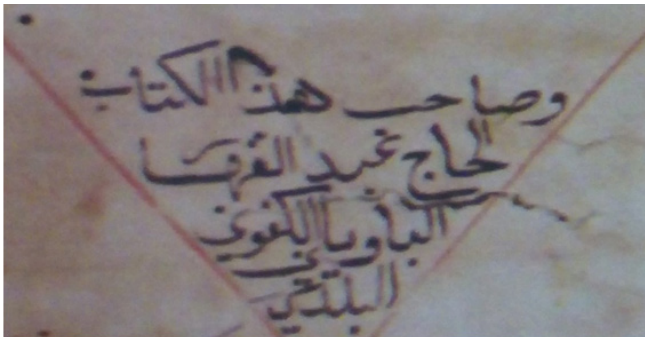 وصاحب هذا الكتاب
الحاج عبد القهار
الباويا الكفوي
البلدي